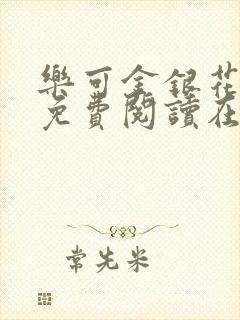 樂可金銀花
免費閱讀在
常先米